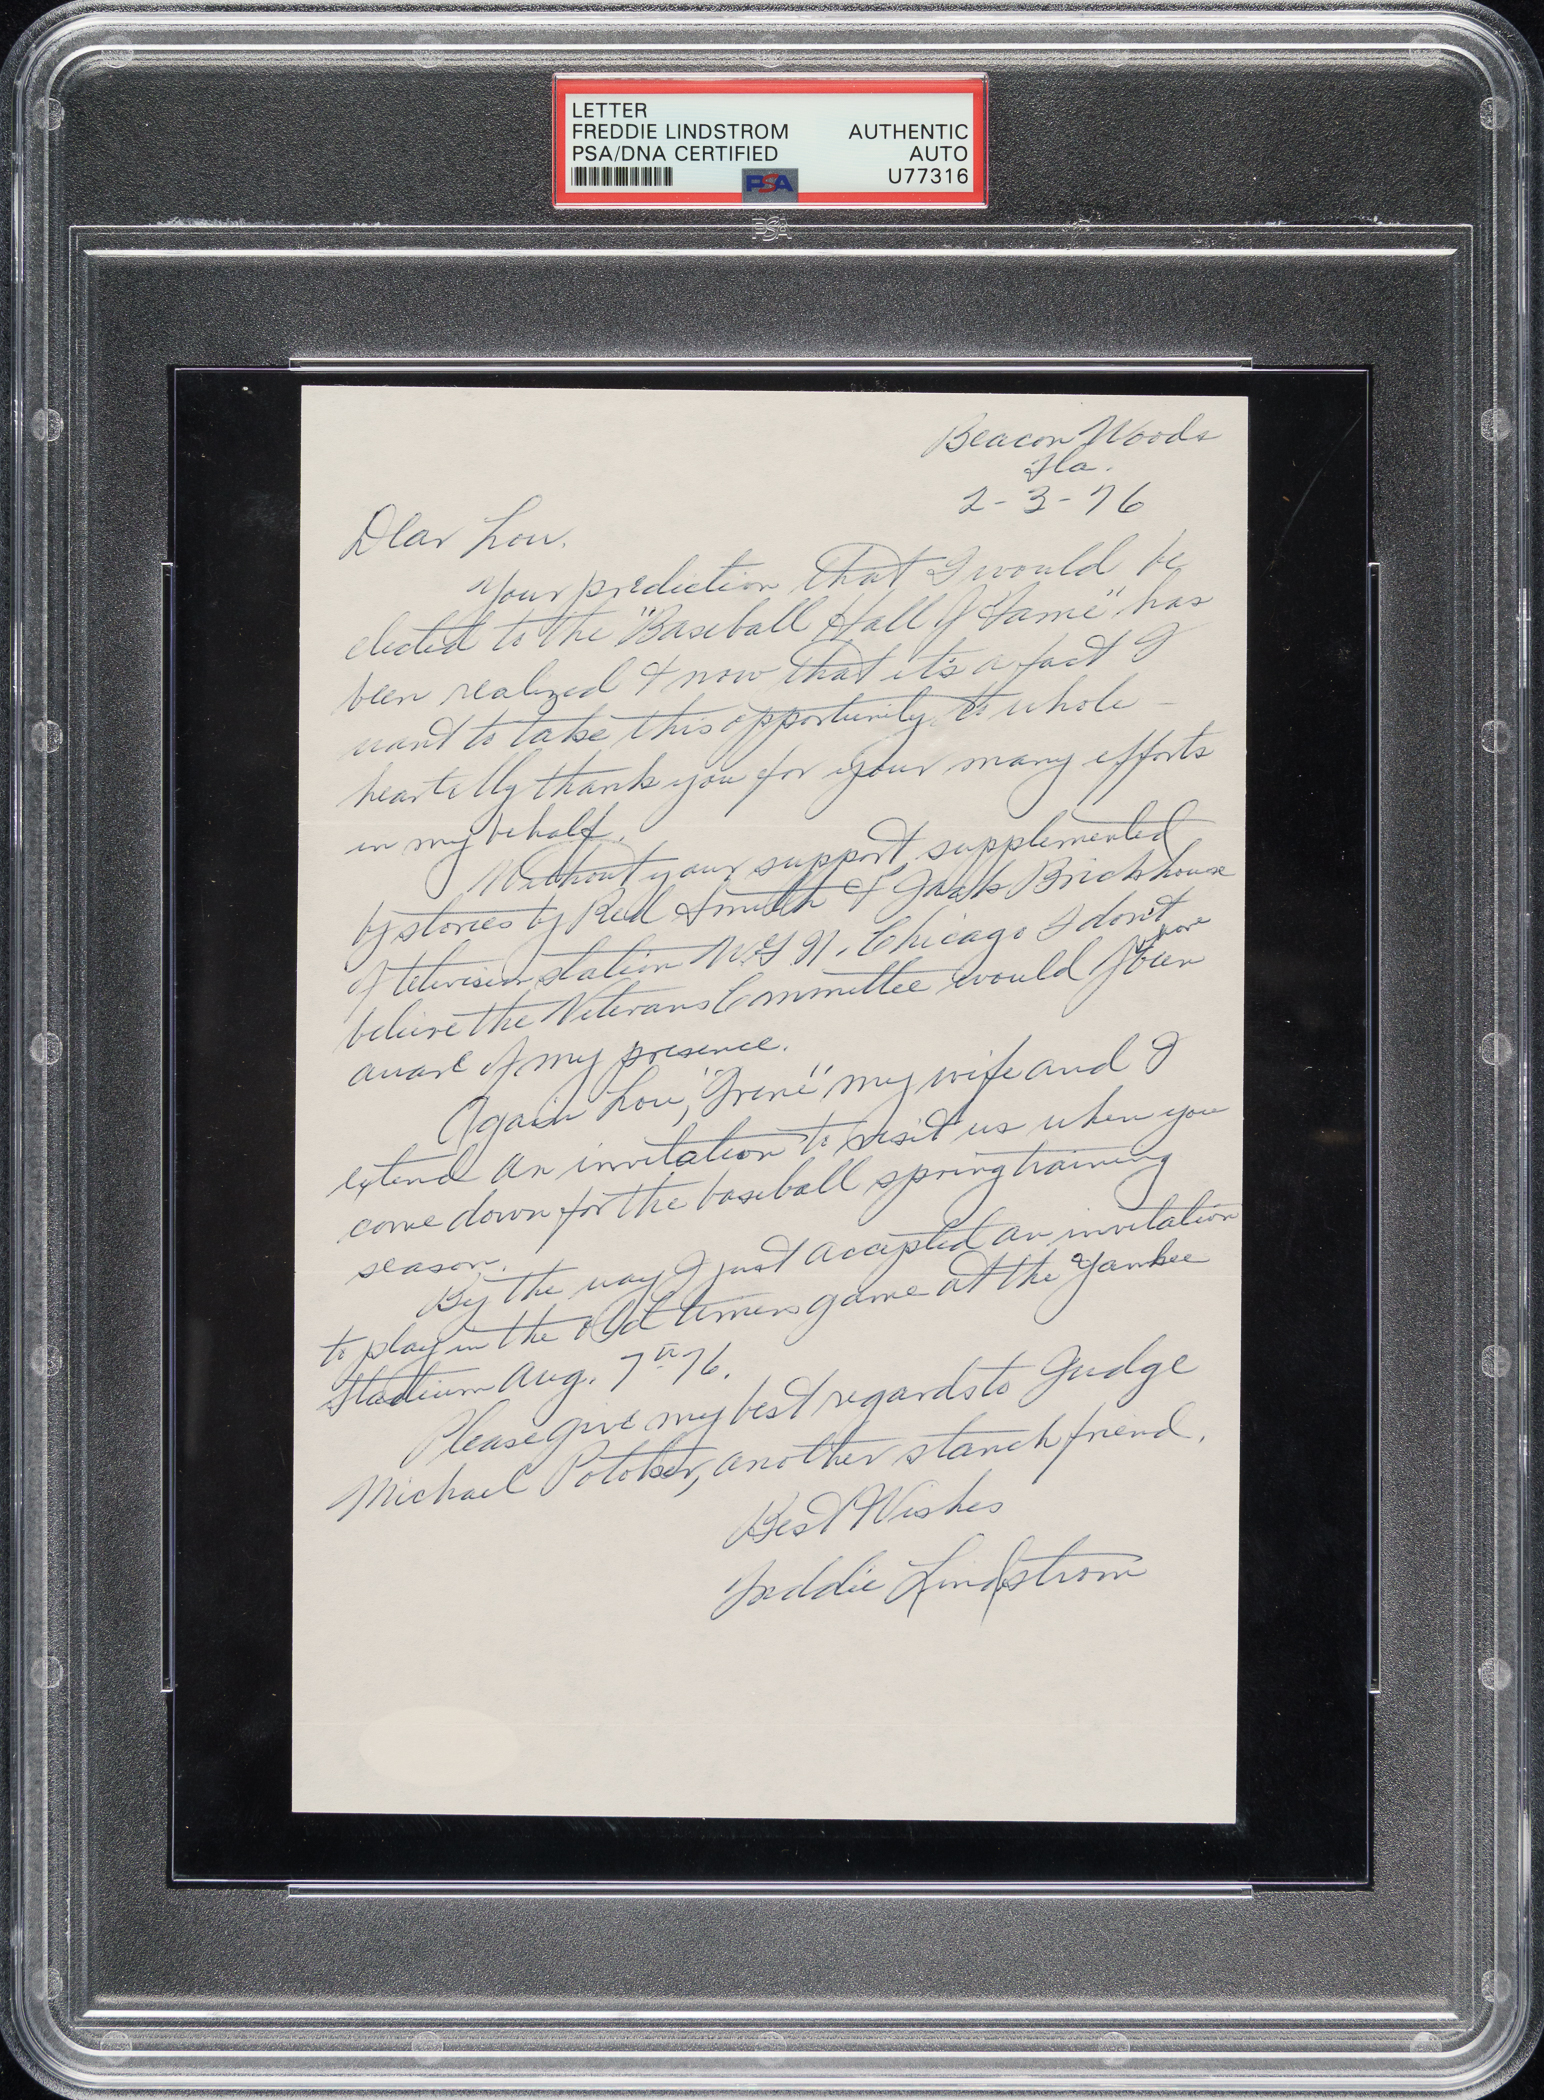 LETTER
FREDDIE LINDSTROM AUTHENTIC
PSA/DNA CERTIFIED AUTO
PSA U77316
PSA
Beacon Woods
Fla.
2-3-76
Dear Lou.
Your prediction that I would be
elected to the "Baseball Hall of Fame" has
been realized & now that it's a fact I
want to take this opportunity to whole-
heartedly thank you for your many efforts
in my behalf.
Without your support, supplemented
by stories by Red Smith & Jack Brickhouse
of television station W.G.N. Chicago I don't
believe the Veterans Committee would have been
aware of my presence.
Again Lou, "Irene" my wife and I
extend an invitation to visit us when you
come down for the baseball spring training
season.
By the way I just accepted an invitation
to play in the old timers game at the Yankee
Stadium Aug. 7th 76.
Please give my best regards to Judge
Michael Potoker, another stanch friend.
Best Wishes
Freddie Lindstrom